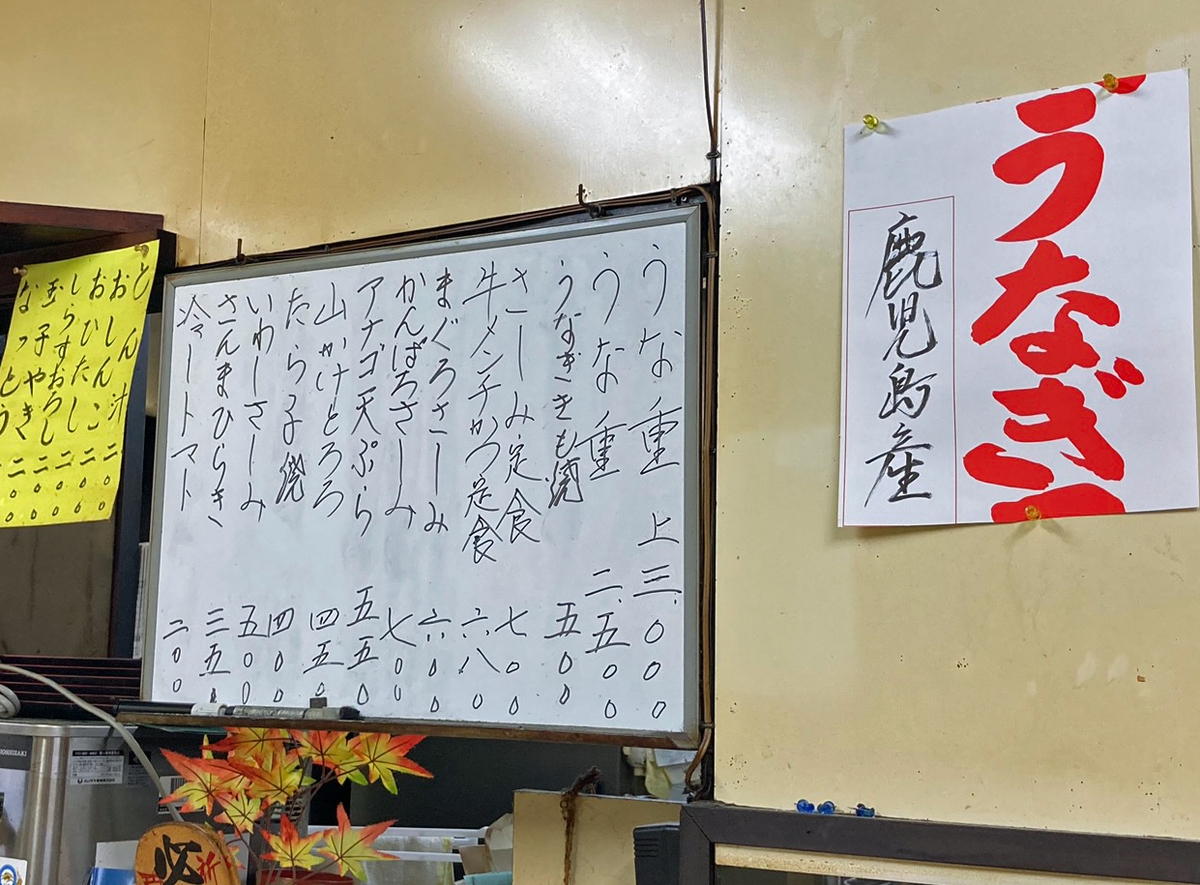 うなぎ
鹿児島産
うな重 上 三.〇〇〇
うな重 二.五〇〇
うなぎきも焼 五〇〇
さしみ定食 七〇〇
牛メンチかつ定食 六八〇
まぐろさしみ 六〇〇
かんぱちさしみ 七〇〇
アナゴ天ぷら 五五〇
山かけとろろ 四五〇
たら子焼 四〇〇
いわしさしみ 五〇〇
さんまひらき 三五〇
冷やしトマト 二〇〇
とん汁 二〇〇
おしんこ 二〇〇
おひたし 二〇〇
しらすおろし 二〇〇
玉子やき 二〇〇
なっとう
必